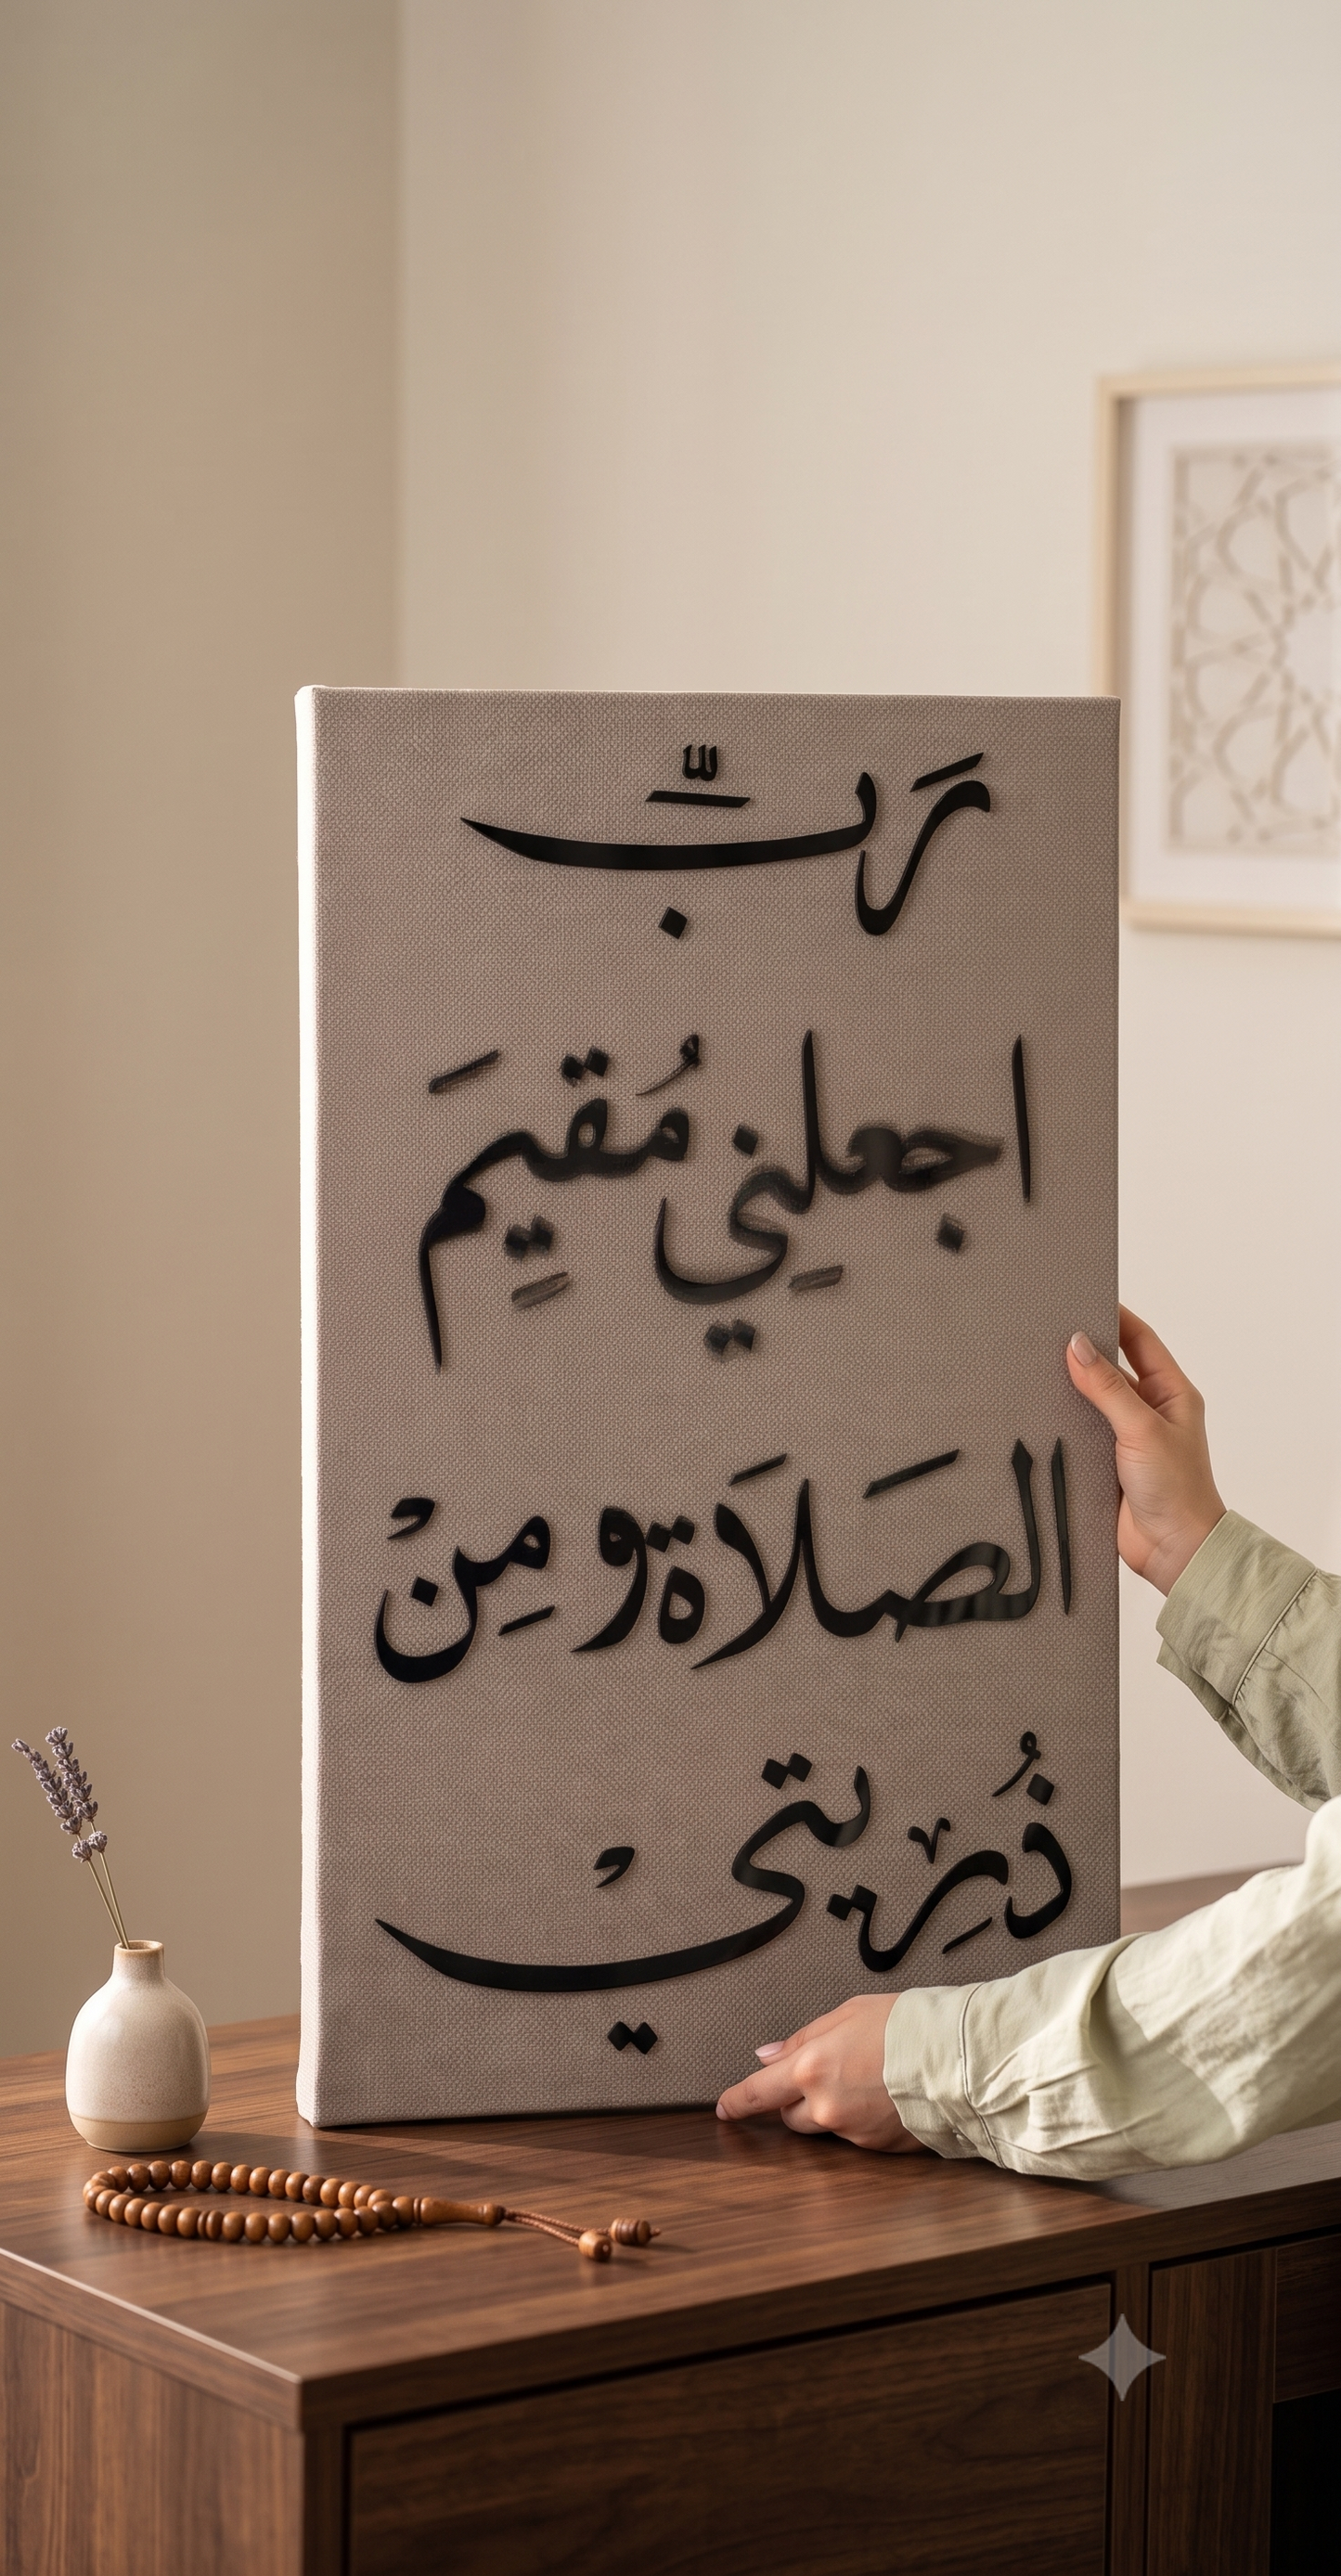 رَبِّ
اجعلنِي مُقِيمَ
الصَلَاَة ومِنْ
ذُرِيتيْ